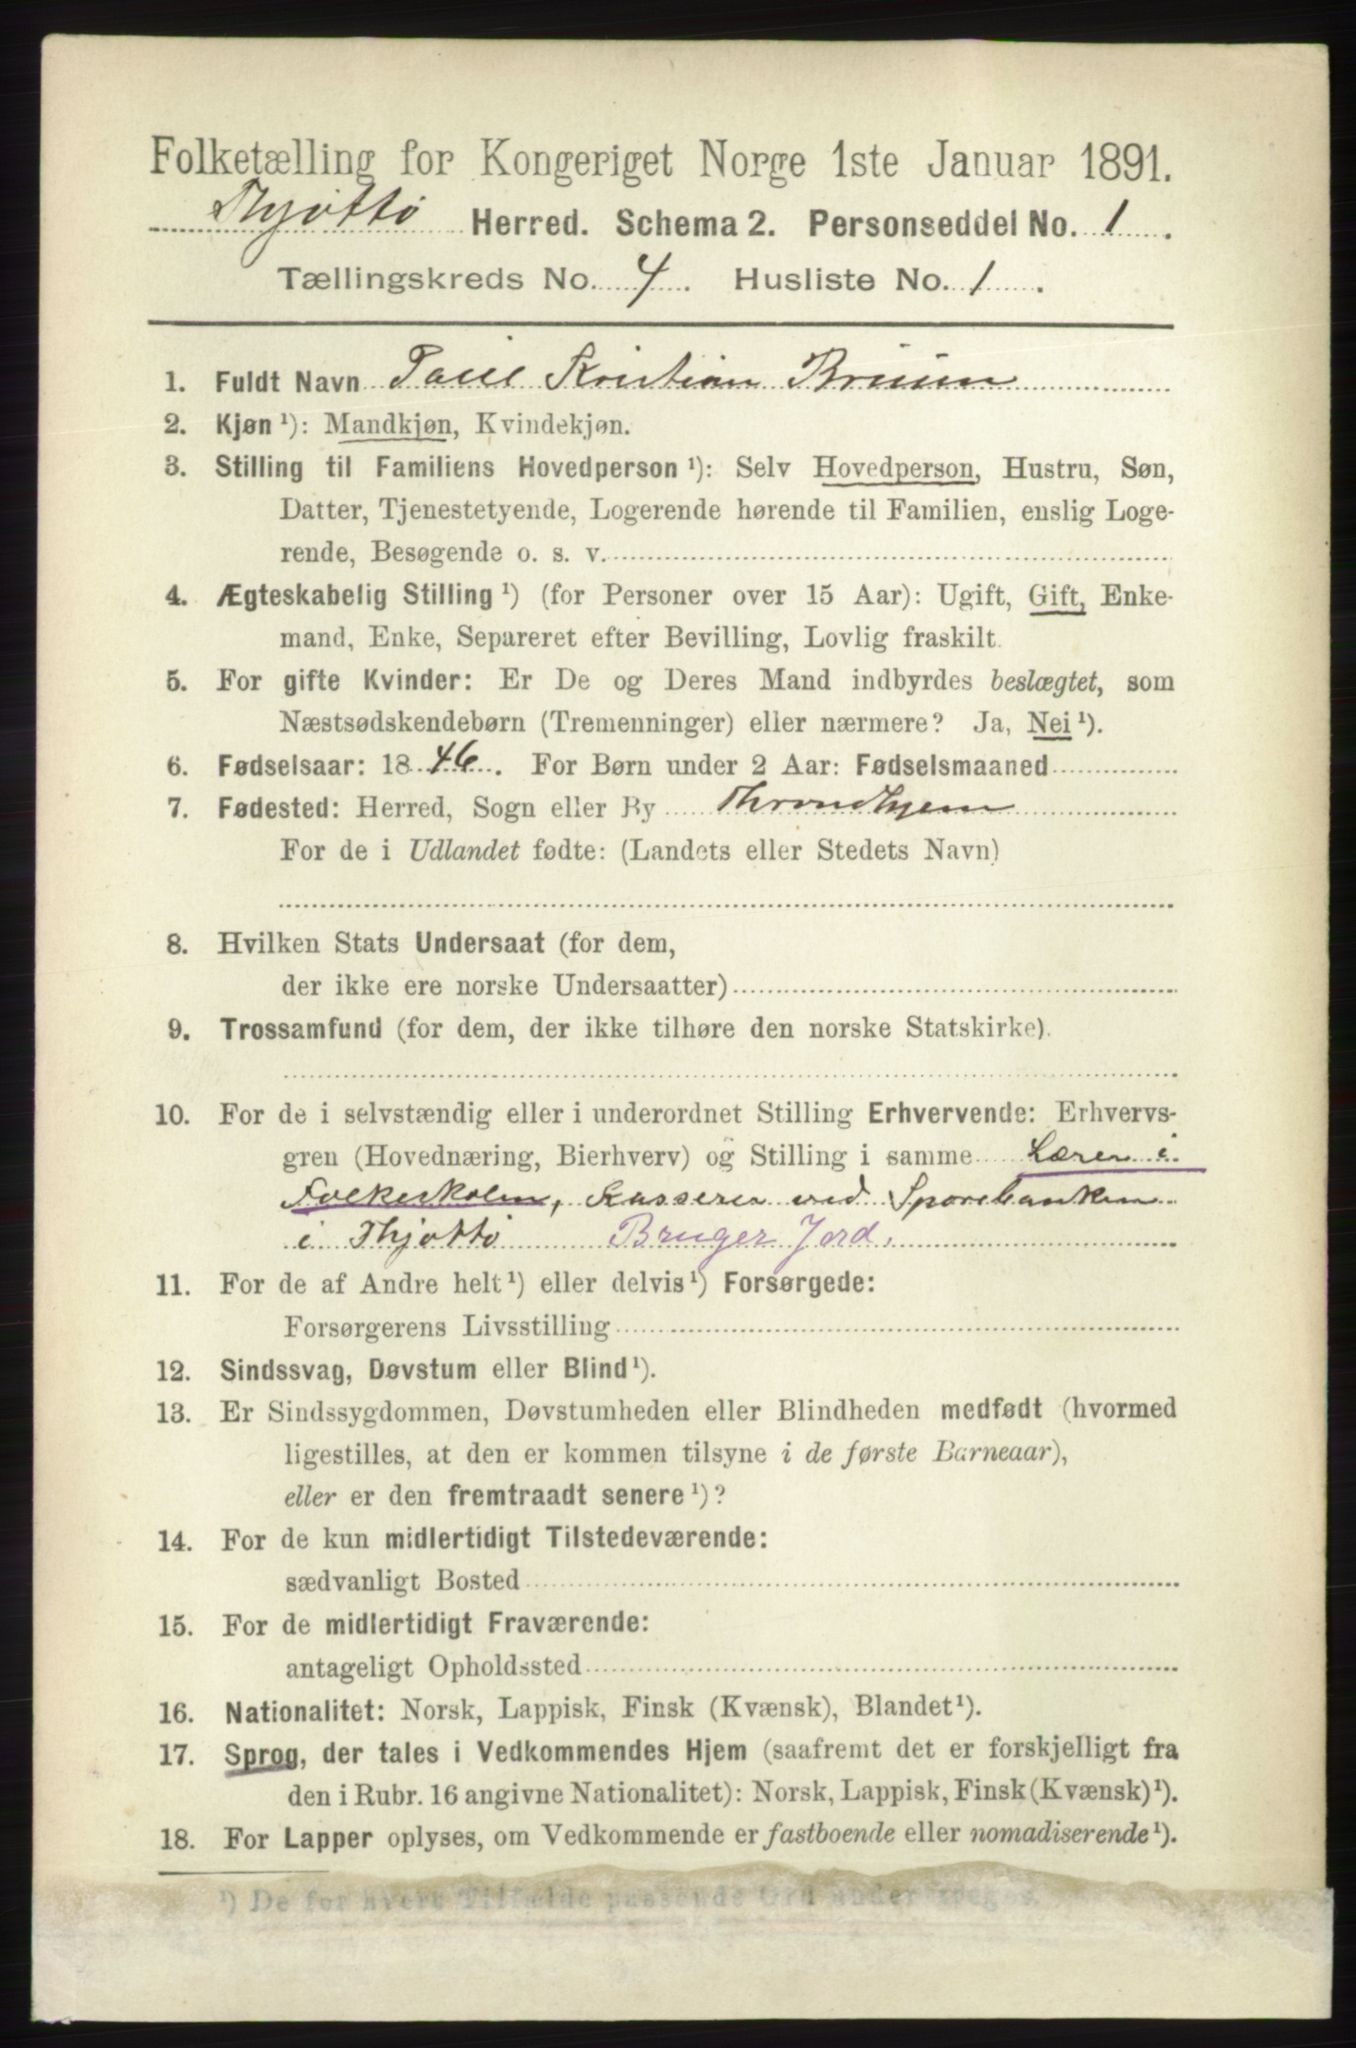 Folketælling for Kongeriget Norge 1ste Januar 1891.
Thjøttø Herred. Schema 2. Personseddel No. 1.
Tællingskreds No. 4. Husliste No. 1.
1. Fuldt Navn Paul Kristian Bruun
2. Kjøn ¹): Mandkjøn, Kvindekjøn.
3. Stilling til Familiens Hovedperson ¹): Selv Hovedperson, Hustru, Søn,
Datter, Tjenestetyende, Logerende hørende til Familien, enslig Loge-
rende, Besøgende o. s. v.
4. Ægteskabelig Stilling ¹) (for Personer over 15 Aar): Ugift, Gift, Enke-
mand, Enke, Separeret efter Bevilling, Lovlig fraskilt.
5. For gifte Kvinder: Er De og Deres Mand indbyrdes beslægtet, som
Næstsødskendebørn (Tremenninger) eller nærmere? Ja, Nei ¹).
6. Fødselsaar: 1846. For Børn under 2 Aar: Fødselsmaaned
7. Fødested: Herred, Sogn eller By Throndhjem
For de i Udlandet fødte: (Landets eller Stedets Navn)
8. Hvilken Stats Undersaat (for dem,
der ikke ere norske Undersaatter)
9. Trossamfund (for dem, der ikke tilhøre den norske Statskirke).
10. For de i selvstændig eller i underordnet Stilling Erhvervende: Erhvervs-
gren (Hovednæring, Bierhverv) og Stilling i samme Lærer i
Folkeskolen, Kasserer ved Sparebanken
i Thjøttø Bruger Jord.
11. For de af Andre helt ¹) eller delvis ¹) Forsørgede:
Forsørgerens Livsstilling
12. Sindssvag, Døvstum eller Blind ¹).
13. Er Sindssygdommen, Døvstumheden eller Blindheden medfødt (hvormed
ligestilles, at den er kommen tilsyne i de første Barneaar),
eller er den fremtraadt senere ¹)?
14. For de kun midlertidigt Tilstedeværende:
sædvanligt Bosted
15. For de midlertidigt Fraværende:
antageligt Opholdssted
16. Nationalitet: Norsk, Lappisk, Finsk (Kvænsk), Blandet ¹).
17. Sprog, der tales i Vedkommendes Hjem (saafremt det er forskjelligt fra
den i Rubr. 16 angivne Nationalitet): Norsk, Lappisk, Finsk (Kvænsk) ¹).
18. For Lapper oplyses, om Vedkommende er fastboende eller nomadiserende ¹).
¹) De for hvert Tilfælde passende Ord understreges.